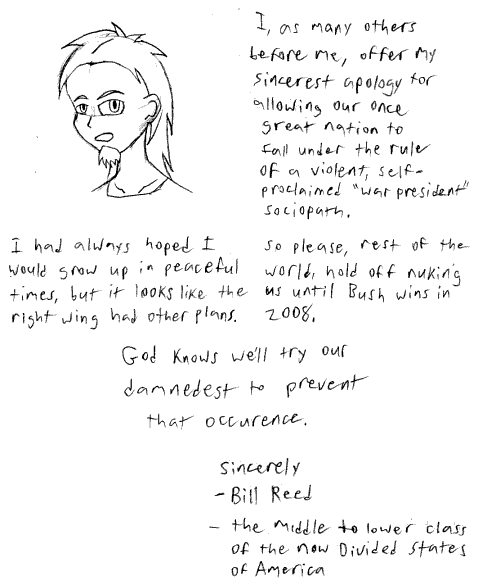 I, as many others
before me, offer my
sincerest apology for
allowing our once
great nation to
fall under the rule
of a violent, self-
proclaimed "war president"
sociopath.
I had always hoped I
would grow up in peaceful
times, but it looks like the
right wing had other plans.
so please, rest of the
world, hold off nuking
us until Bush wins in
2008.
God knows we'll try our
damnedest to prevent
that occurence.
Sincerely
- Bill Reed
- the middle to lower class
of the now Divided States
of America